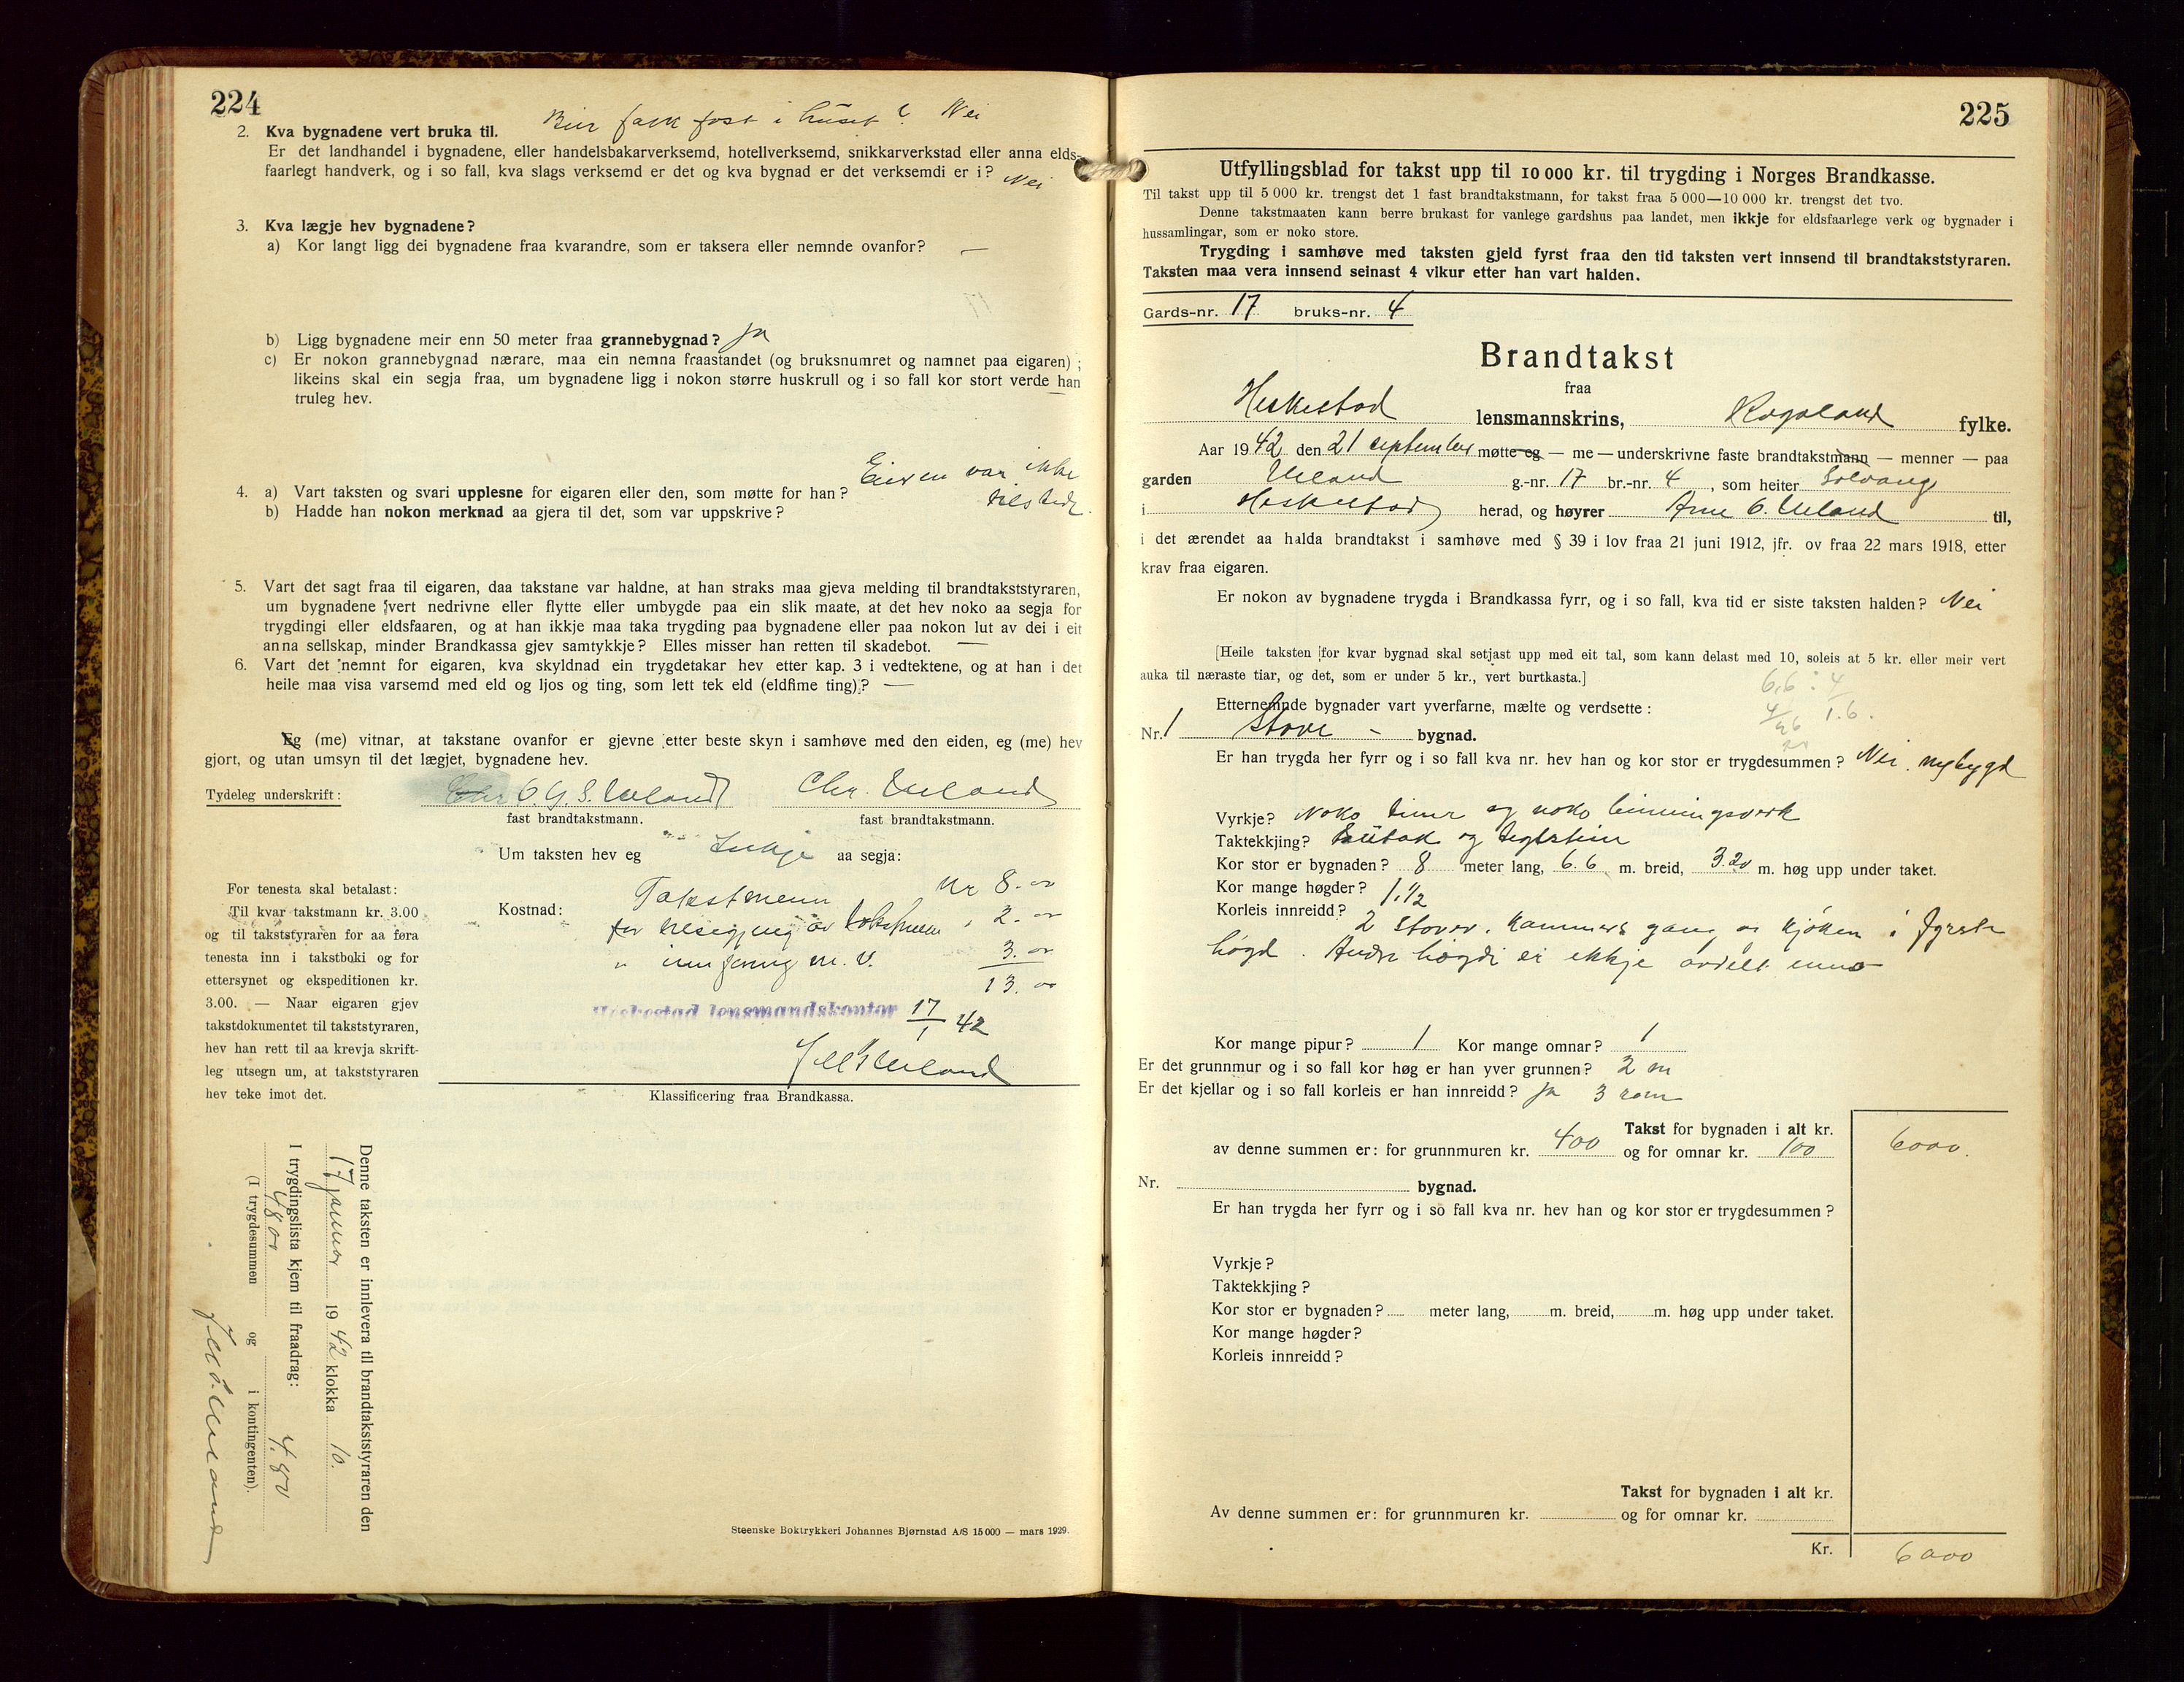 224
2. Kva bygnadene vert bruka til. Bur folk fast i huset? Nei
Er det landhandel i bygnadene, eller handelsbakarverksemd, hotellverksemd, snikkarverkstad eller anna elds-
faarlegt handverk, og i so fall, kva slags verksemd er det og kva bygnad er det verksemdi er i? Nei
3. Kva lægje hev bygnadene?
a) Kor langt ligg dei bygnadene fraa kvarandre, som er taksera eller nemnde ovanfor? —
b) Ligg bygnadene meir enn 50 meter fraa grannebygnad? Ja
c) Er nokon grannebygnad nærare, maa ein nemna fraastandet (og bruksnumret og namnet paa eigaren) ;
likeins skal ein segja fraa, um bygnadene ligg i nokon større huskrull og i so fall kor stort verde han
truleg hev. —
4. a) Vart taksten og svari upplesne for eigaren eller den, som møtte for han? Eieren var ikke
b) Hadde han nokon merknad aa gjera til det, som var uppskrive? tilstede.
5. Vart det sagt fraa til eigaren, daa takstane var haldne, at han straks maa gjeva melding til brandtakststyraren,
um bygnadene vert nedrivne eller flytte eller umbygde paa ein slik maate, at det hev noko aa segja for
trygdingi eller eldsfaaren, og at han ikkje maa taka trygding paa bygnadene eller paa nokon lut av dei i eit
anna sellskap, minder Brandkassa gjev samtykkje? Elles misser han retten til skadebot. —
6. Vart det nemnt for eigaren, kva skyldnad ein trygdetakar hev etter kap. 3 i vedtektene, og at han i det
heile maa visa varsemd med eld og ljos og ting, som lett tek eld (eldfime ting)? —
Eg (me) vitnar, at takstane ovanfor er gjevne etter beste skyn i samhøve med den eiden, eg (me) hev
gjort, og utan umsyn til det lægjet, bygnadene hev.
Tydeleg underskrift: Chr O. G. S. Ueland Chr. Ueland
fast brandtakstmann. fast brandtakstmann.
Um taksten hev eg Inkje aa segja:
For tenesta skal betalast:
Til kvar takstmann kr. 3.00
og til takststyraren for aa føra
tenesta inn i takstboki og for
ettersynet og ekspeditionen kr.
3.00. — Naar eigaren gjev
takstdokumentet til takststyraren,
hev han rett til aa krevja skrift-
leg utsegn um, at takststyraren
hev teke imot det.
Kostnad: Takstmenn kr 8.00
for tilsigjing av takstmenn " 2.00
" innføring m. v. 3.00
13.00
Heskestad lensmandskontor 17/1 42
Ueland
Klassificering fraa Brandkassa.
Denne taksten er innlevera til brandtakststyraren den
17 januar 1942 klokka 10.
I trygdingslista kjem til fraadrag:
4800 4.80
(I trygdesummen og i kontingenten).
Ueland
Steenske Boktrykkeri Johannes Bjørnstad A/S 15 000 — mars 1929.
225
Utfyllingsblad for takst upp til 10 000 kr. til trygding i Norges Brandkasse.
Til takst upp til 5 000 kr. trengst det 1 fast brandtakstmann, for takst fraa 5 000—10 000 kr. trengst det tvo.
Denne takstmaaten kann berre brukast for vanlege gardshus paa landet, men ikkje for eldsfaarlege verk og bygnader i
hussamlingar, som er noko store.
Trygding i samhøve med taksten gjeld fyrst fraa den tid taksten vert innsend til brandtakststyraren.
Taksten maa vera innsend seinast 4 vikur etter han vart halden.
Gards-nr. 17 bruks-nr. 4
Brandtakst
fraa
Heskestad lensmannskrins, Rogaland fylke.
Aar 1942 den 21 september møtte eg — me — underskrivne faste brandtakstmann — menner — paa
garden Ueland g.-nr. 17 br.-nr. 4 , som heiter Solvang
i Heskestad herad, og høyrer Arne G. Ueland til,
i det ærendet aa halda brandtakst i samhøve med § 39 i lov fraa 21 juni 1912, jfr. ov fraa 22 mars 1918, etter
krav fraa eigaren.
Er nokon av bygnadene trygda i Brandkassa fyrr, og i so fall, kva tid er siste taksten halden? Nei
[Heile taksten for kvar bygnad skal setjast upp med eit tal, som kann delast med 10, soleis at 5 kr. eller meir vert
auka til næraste tiar, og det, som er under 5 kr., vert burtkasta.]
6.6 : 4
1.6.
Etternemnde bygnader vart yverfarne, mælte og verdsette :
Nr. 1 Stove - bygnad.
Er han trygda her fyrr og i so fall kva nr. hev han og kor stor er trygdesummen? Nei. nybygd
Vyrkje? Noko timr og noko binningsverk
Taktekkjing? Sutak og teglstein
Kor stor er bygnaden? 8 meter lang, 6.6 m. breid, 3.20 m. høg upp under taket.
Kor mange høgder? 1.1/2
Korleis innreidd? 2 stover. kammers gang og kjøken i fyrste
høgd. Andre høgdi er ikkje avdelt enno
Kor mange pipur? 1 Kor mange omnar? 1
Er det grunnmur og i so fall kor høg er han yver grunnen? 2 m
Er det kjellar og i so fall korleis er han innreidd? Ja 3 rom
Takst for bygnaden i alt kr. 6000.
av denne summen er: for grunnmuren kr. 400 og for omnar kr. 100
Nr. bygnad.
Er han trygda her fyrr og i so fall kva nr. hev han og kor stor er trygdesummen?
Vyrkje?
Taktekkjing?
Kor stor er bygnaden? meter lang, m. breid, m. høg upp under taket.
Kor mange høgder?
Korleis innreidd?
Takst for bygnaden i alt kr.
Av denne summen er: for grunnmuren kr. og for omnar kr.
Kr. 6000